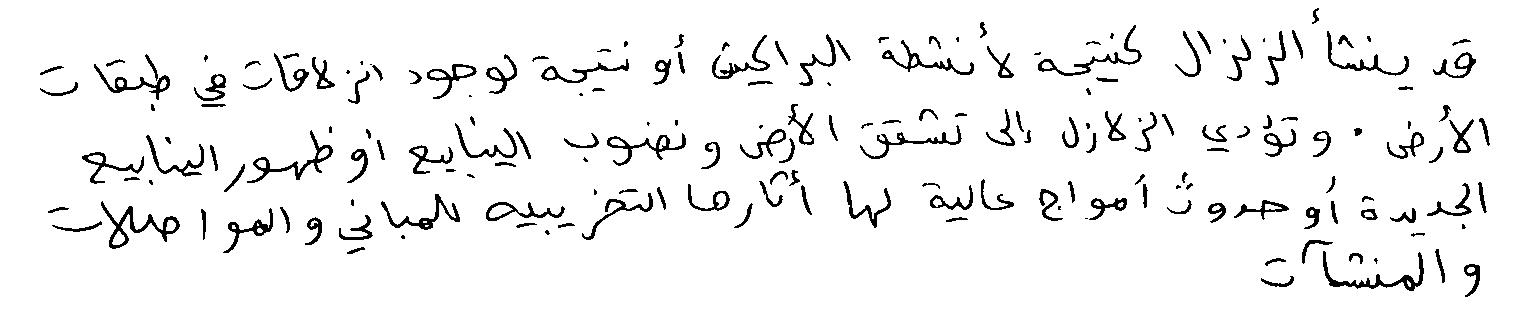 قد ينشأ الزلزال كنتيجة لأنشطة البراكين أو نتيجة لوجود انزلاقات في طبقات
الأرض . وتؤدي الزلازل إلى تشقق الأرض ونضوب الينابيع أو ظهور الينابيع
الجديدة أو حدوث أمواج عالية لها أثارها التخريبيه للمباني والمواصلات
والمنشآت